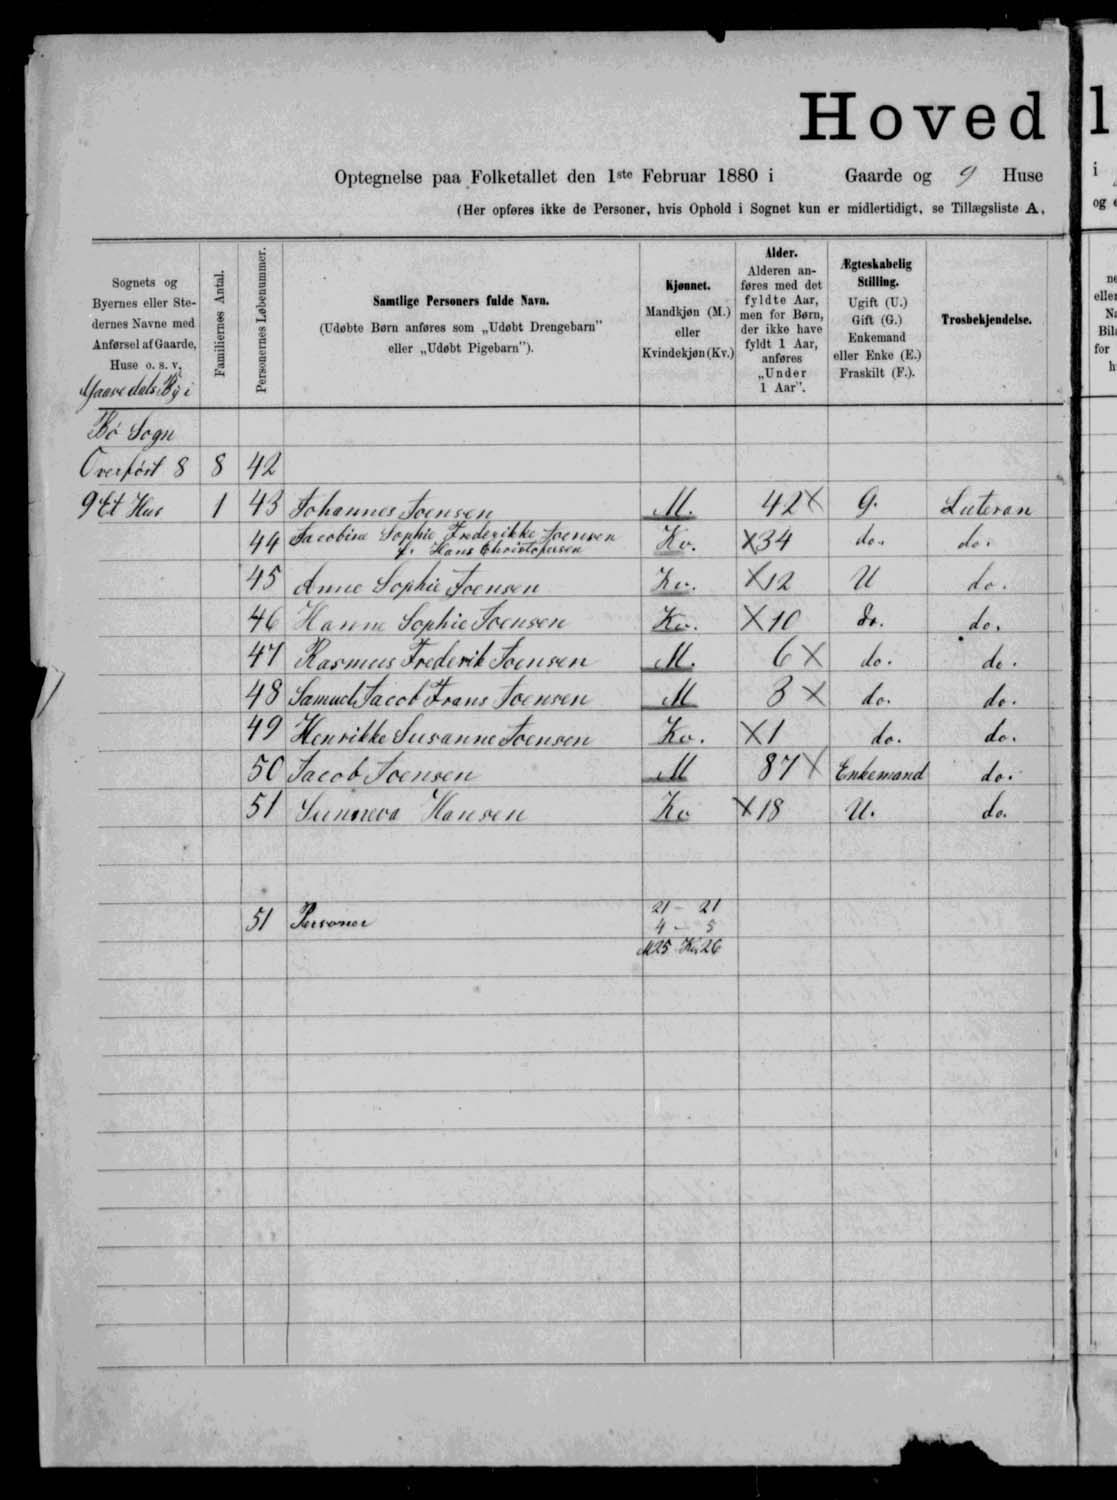 Hoved
Optegnelse paa Folketallet den 1ste Februar 1880 i Gaarde og 9 Huse
(Her opføres ikke de Personer, hvis Ophold i Sognet kun er midlertidigt, se Tillægsliste A,
Sognets og Byernes eller Ste-dernes Navne med Anførsel af Gaarde, Huse o. s. v.
Familiernes Antal.
Personernes Løbenummer.
Samtlige Personers fulde Navn.
(Udøbte Børn anføres som „Udøbt Drengebarn"
eller „Udøbt Pigebarn").
Kjønnet.
Mandkjøn (M.)
eller
Kvindekjøn (Kv.)
Alder.
Alderen an-
føres med det
fyldte Aar,
men for Børn,
der ikke have
fyldt 1 Aar,
anføres
„Under
1 Aar".
Ægteskabelig
Stilling.
Ugift (U.)
Gift (G.)
Enkemand
eller Enke (E.)
Fraskilt (F.).
Trosbekjendelse.
By i
Bø Sogn
Overført 8 8 42
9 Et Hus 1 43 Johannes Joensen M. 42 X G. Luteran
44 Jacobine Sophie Frederikke Joensen Kv. X 34 do. do.
f. Hans Christofersen
45 Anne Sophie Joensen Kv. X 12 U do.
46 Hanne Sophie Joensen Kv. X 10 do. do.
47 Rasmus Frederik Joensen M. 6 X do. do.
48 Samuel Jacob Frans Joensen M 3 X do. do.
49 Henrikke Susanne Joensen Kv. X 1 do. do.
50 Jacob Joensen M 87 X Enkemand do.
51 Sunneva Hansen Kv X 18 U. do.
21 - 21
51 Personer 4 - 5
M 25 Kv. 26